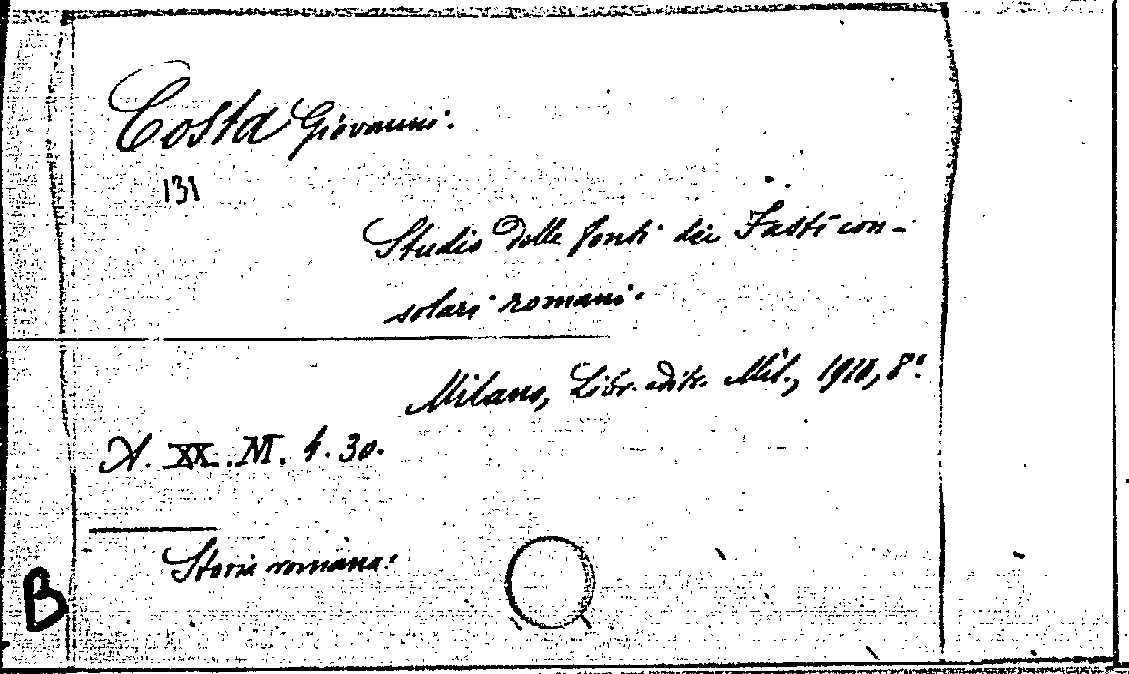 Costa Giovanni.
131
Studio delle fonti dei Fasti con-
solari romani.
Milano, Libr. editr. Mil., 1910, 8°.
A. XX. M. 4. 30.
Storia romana.
B